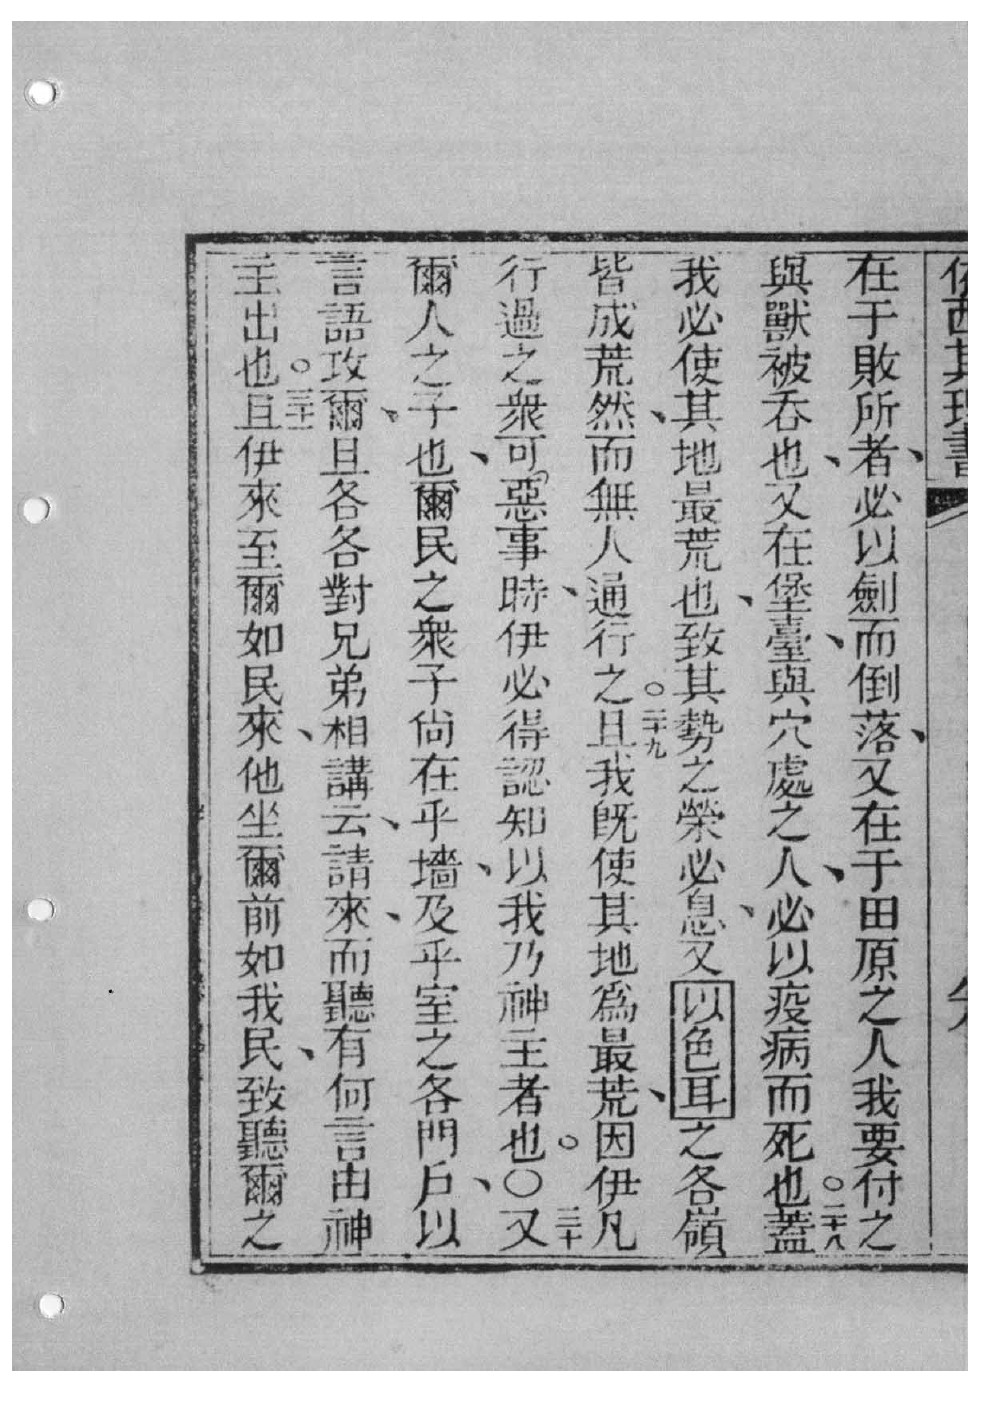 依西其理書
在于敗所者、必以劍而倒落、又在于田原之人我要付之
與獸被吞也、又在堡臺、與穴處之人、必以疫病而死也○二十八蓋
我必使其地最荒也、致其勢之榮必息、又以色耳之各嶺
皆成荒然、而無人通行之○二十九且我既使其地爲最荒、因伊凡
行過之衆可惡事時、伊必得認知以我乃神主者也○〇三十又
爾人之子也、爾民之衆子尙在乎墻、及乎室之各門戶、以
言語攻爾、且各各對兄弟相講云、請來、而聽有何言由神
主出也○三十一且伊來至爾如民來、他坐爾前如我民、致聽爾之